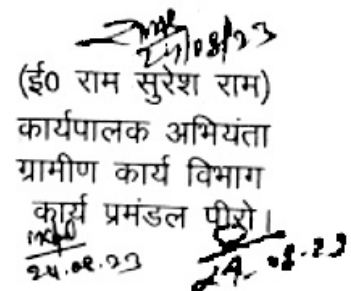 24/08/23
(ई0 राम सुरेश राम)
कार्यपालक अभियंता
ग्रामीण कार्य विभाग
कार्य प्रमंडल पीरो।
24.08.23
24.08.23